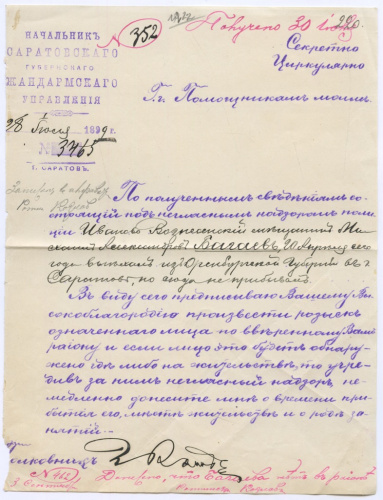 НАЧАЛЬНИКЪ
САРАТОВСКАГО
ГУБЕРНСКАГО
ЖАНДАРМСКАГО
УПРАВЛЕНІЯ
28 Іюля 1899 г.
№ 3465
Г. САРАТОВЪ.
№ 352
Получено 30
Секретно
Циркулярно
Г.г. Помощникамъ моимъ.
По полученнымъ свѣдѣніямъ со-
стоящій подъ негласнымъ надзоромъ поли-
ціи Иваново-Вознесенскій мѣщанинъ
Александровъ Багаевъ, 20 Апрѣля сего
года выѣхалъ изъ Оренбургской губерніи въ г.
Саратовъ, но сюда не прибывалъ.
Въ виду сего предписываю Вашему Вы-
сокоблагородію произвести розыскъ
означеннаго лица по ввѣренному Вамъ
району и если лицо это будетъ обнару-
жено гдѣ либо на жительствѣ, то учре-
дивъ за нимъ негласный надзоръ, не-
медленно донести мнѣ о времени при-
бытія его, мѣстѣ жительства и о родѣ за-
нятій.
Полковникъ
№ 462
Донесено, что Багаева нѣтъ въ раіонѣ